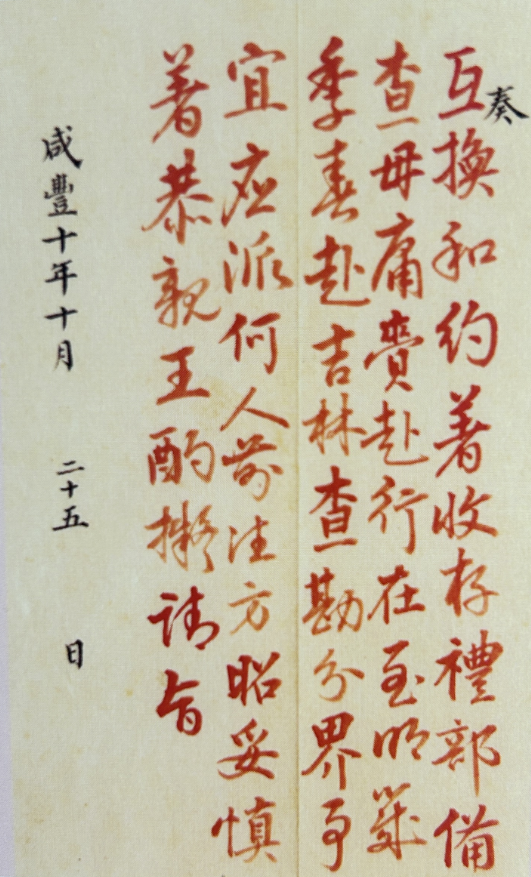 奏
互換和約著收存禮部備
查毋庸賷赴行在至明歲
季春赴吉林查勘分界事
宜应派何人前往方昭妥慎
著恭親王酌擬請旨
咸豐十年十月 二十五 日